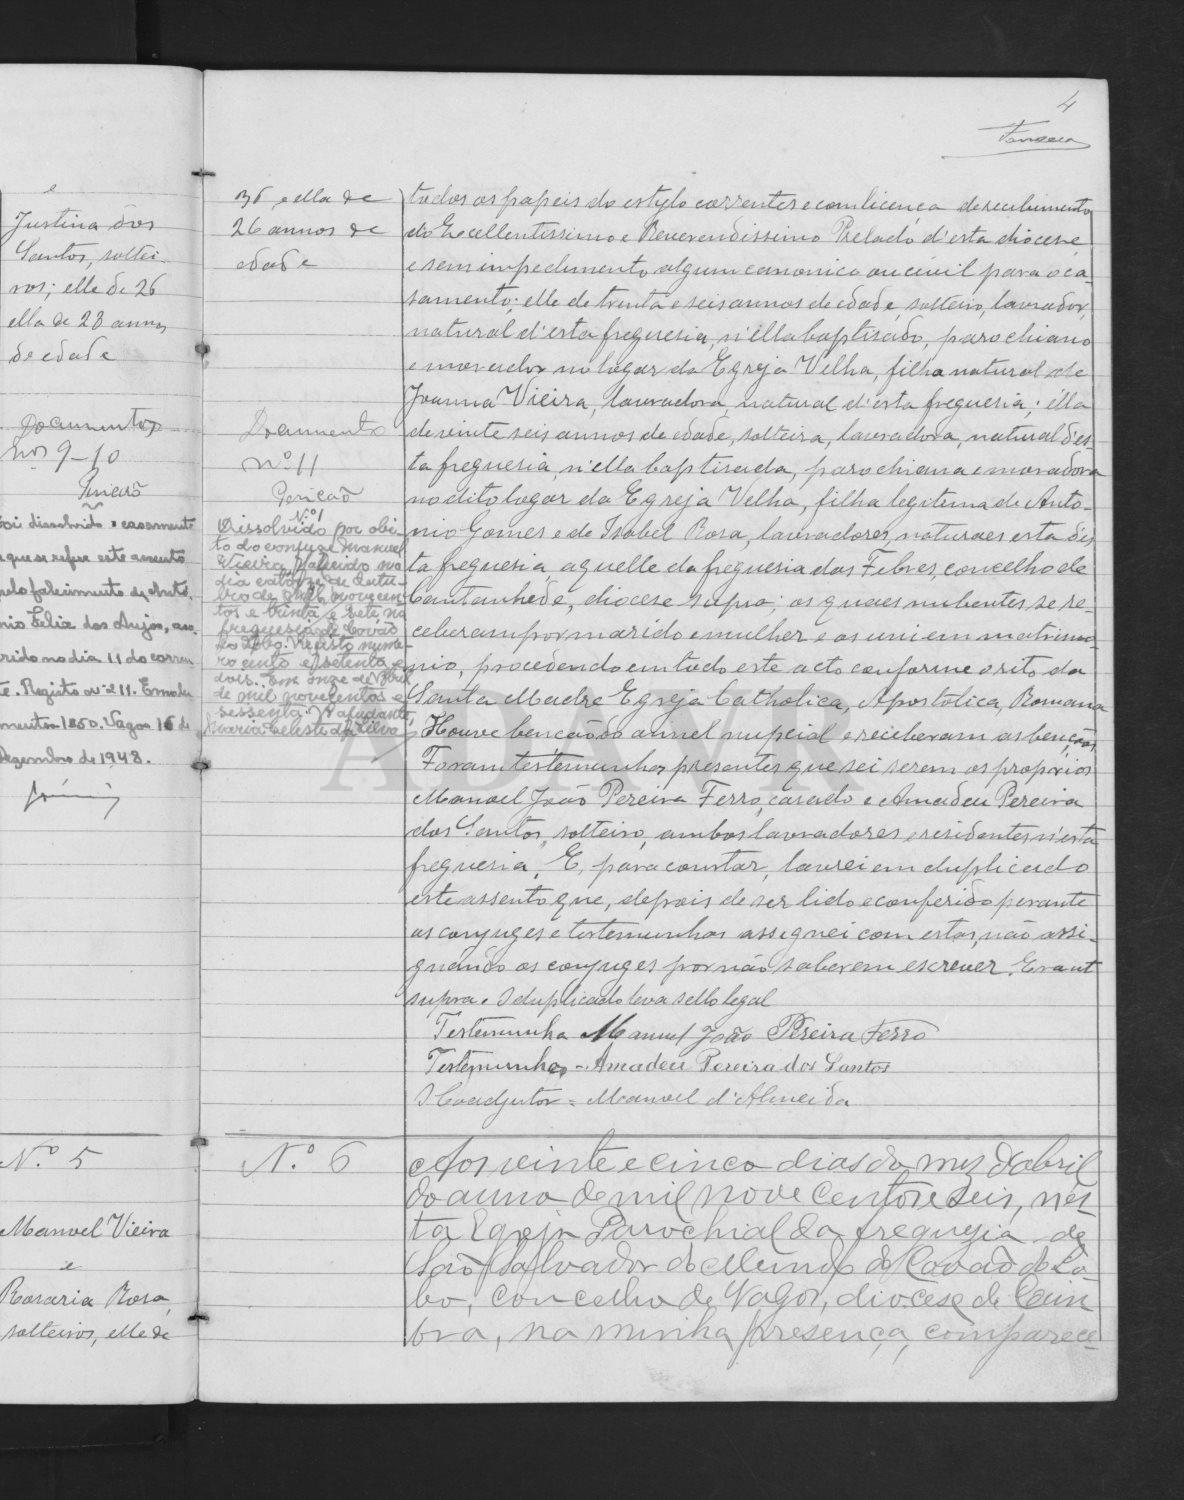 4
Fonseca
e
Justina dos
Santos, soltei-
ros; elle de 26
ella de 23 annos
de edade
Documentos
Nos 9-10
Foi dissolvido o casamento
a que se refere este assento
pelo falecimento de Anto-
nio Felix dos Anjos, ocor-
rido no dia 11 do corren
te. Registo nº 211. Emolu
mentos 1$50. Vagos 16 de
Dezembro de 1948.
N.º 5
Manoel Vieira
e
Rosaria Rosa,
solteiros, elle de
36, e ella de
26 annos de
edade
Documento
nº 11
Dissolvido por obi-
to do conjuge Manuel
Vieira, falecido no
dia catorze de Outu-
bro de mil novecen-
tos e trinta e sete, na
freguesia de Covão
do Lobo. Registo nume-
ro cento e setenta e
dois. Em onze de Abril
de mil novecentos e
sessenta. A ajudante,
Maria Celeste da Silva
todos os papeis do estylo correntes e com licença de recebimento
do Excellentissimo e Reverendissimo Prelado d'esta diocese,
e sem impedimento algum canonico ou civil para o ca-
samento; elle de trinta e seis annos de edade, solteiro, lavrador,
natural d'esta freguesia, n'ella baptisado, parochiano
e morador no logar da Egreja Velha, filho natural de
Joanna Vieira, lavradora, natural d'esta freguesia; élla
de vinte seis annos de edade, solteira, lavradora, natural d'es-
ta freguesia, n'ella baptisada, parochiana e moradora
no dito logar da Egreja Velha, filha legitima de Anto-
nio Gomes e de Isabel Rosa, lavradores, naturaes esta d'es
ta freguesia aquelle da freguesia das Febres, concelho de
Cantanhede, diocese supra; os quaes nubentes se re-
ceberam por marido e mulher e os uni em matrimo-
nio, procedendo em todo este acto conforme o rito da
Santa Madre Egreja Catholica, Apostolica, Romana
Houve benção do annel nupcial e receberam as bençãos.
Foram testemunhas presentes que sei serem os proprios
Manoel João Pereira Ferro, casado e Amadeu Pereira
dos Santos, solteiro, ambos lavradores e residentes n'esta
freguesia. E, para constar, lavrei em duplicado
este assento que, depois de ser lido e conferido perante
os conjuges e testemunhas assignei com estas, não assi-
gnando os conjuges por não saberem escrever. Era ut
supra. O duplicado leva sello legal
Testemunha Manuel João Pereira Ferro
Testemunha - Amadeu Pereira dos Santos
O Coadjutor = Manoel d'Almeida
N.º 6
Aos vinte e cinco dias do mez d'Abril
do anno de mil nove centos e seis, nes-
ta Egreja Parochial da freguezia de
São Salvador do Mundo do Covão do Lo-
bo, concelho de Vagos, diocese de Coim
bra, na minha presença, comparece-
ADAVR